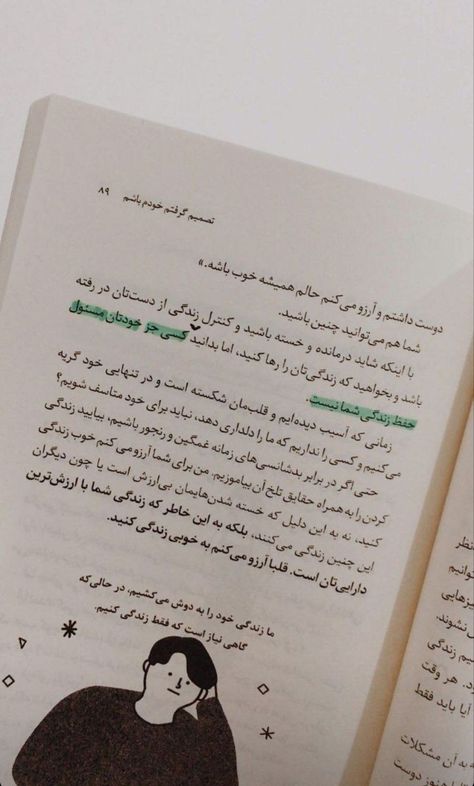 تصمیم گرفتم خودم باشم ۸۹
دوست داشتم و آرزو می‌کنم حالم همیشه خوب باشه.»
شما هم می‌توانید چنین باشید.
با اینکه شاید درمانده و خسته باشید و کنترل زندگی از دست‌تان در رفته
باشد و بخواهید که زندگی‌تان را رها کنید، اما بدانید کسی جز خودتان مسئول
حفظ زندگی شما نیست.
زمانی که آسیب دیده‌ایم و قلب‌مان شکسته است و در تنهایی خود گریه
می‌کنیم و کسی را نداریم که ما را دلداری دهد، نباید برای خود متاسف شویم؟
حتی اگر در برابر بدشانسی‌های زمانه غمگین و رنجور باشیم، بیایید زندگی
کردن را به همراه حقایق تلخ آن بیاموزیم. من برای شما آرزو می‌کنم خوب زندگی
کنید، نه به این دلیل که خسته شدن‌هایمان بی‌ارزش است یا چون دیگران
این چنین زندگی می‌کنند، بلکه به این خاطر که زندگی شما با ارزش‌ترین
دارایی‌تان است. قلبا آرزو می‌کنم به خوبی زندگی کنید.
ما زندگی خود را به دوش می‌کشیم، در حالی‌که
گاهی نیاز است که فقط زندگی کنیم.
توانیم
نشوند.
زندگی
هر وقت
آیا باید فقط
به آن مشکلات
هنوز دوست